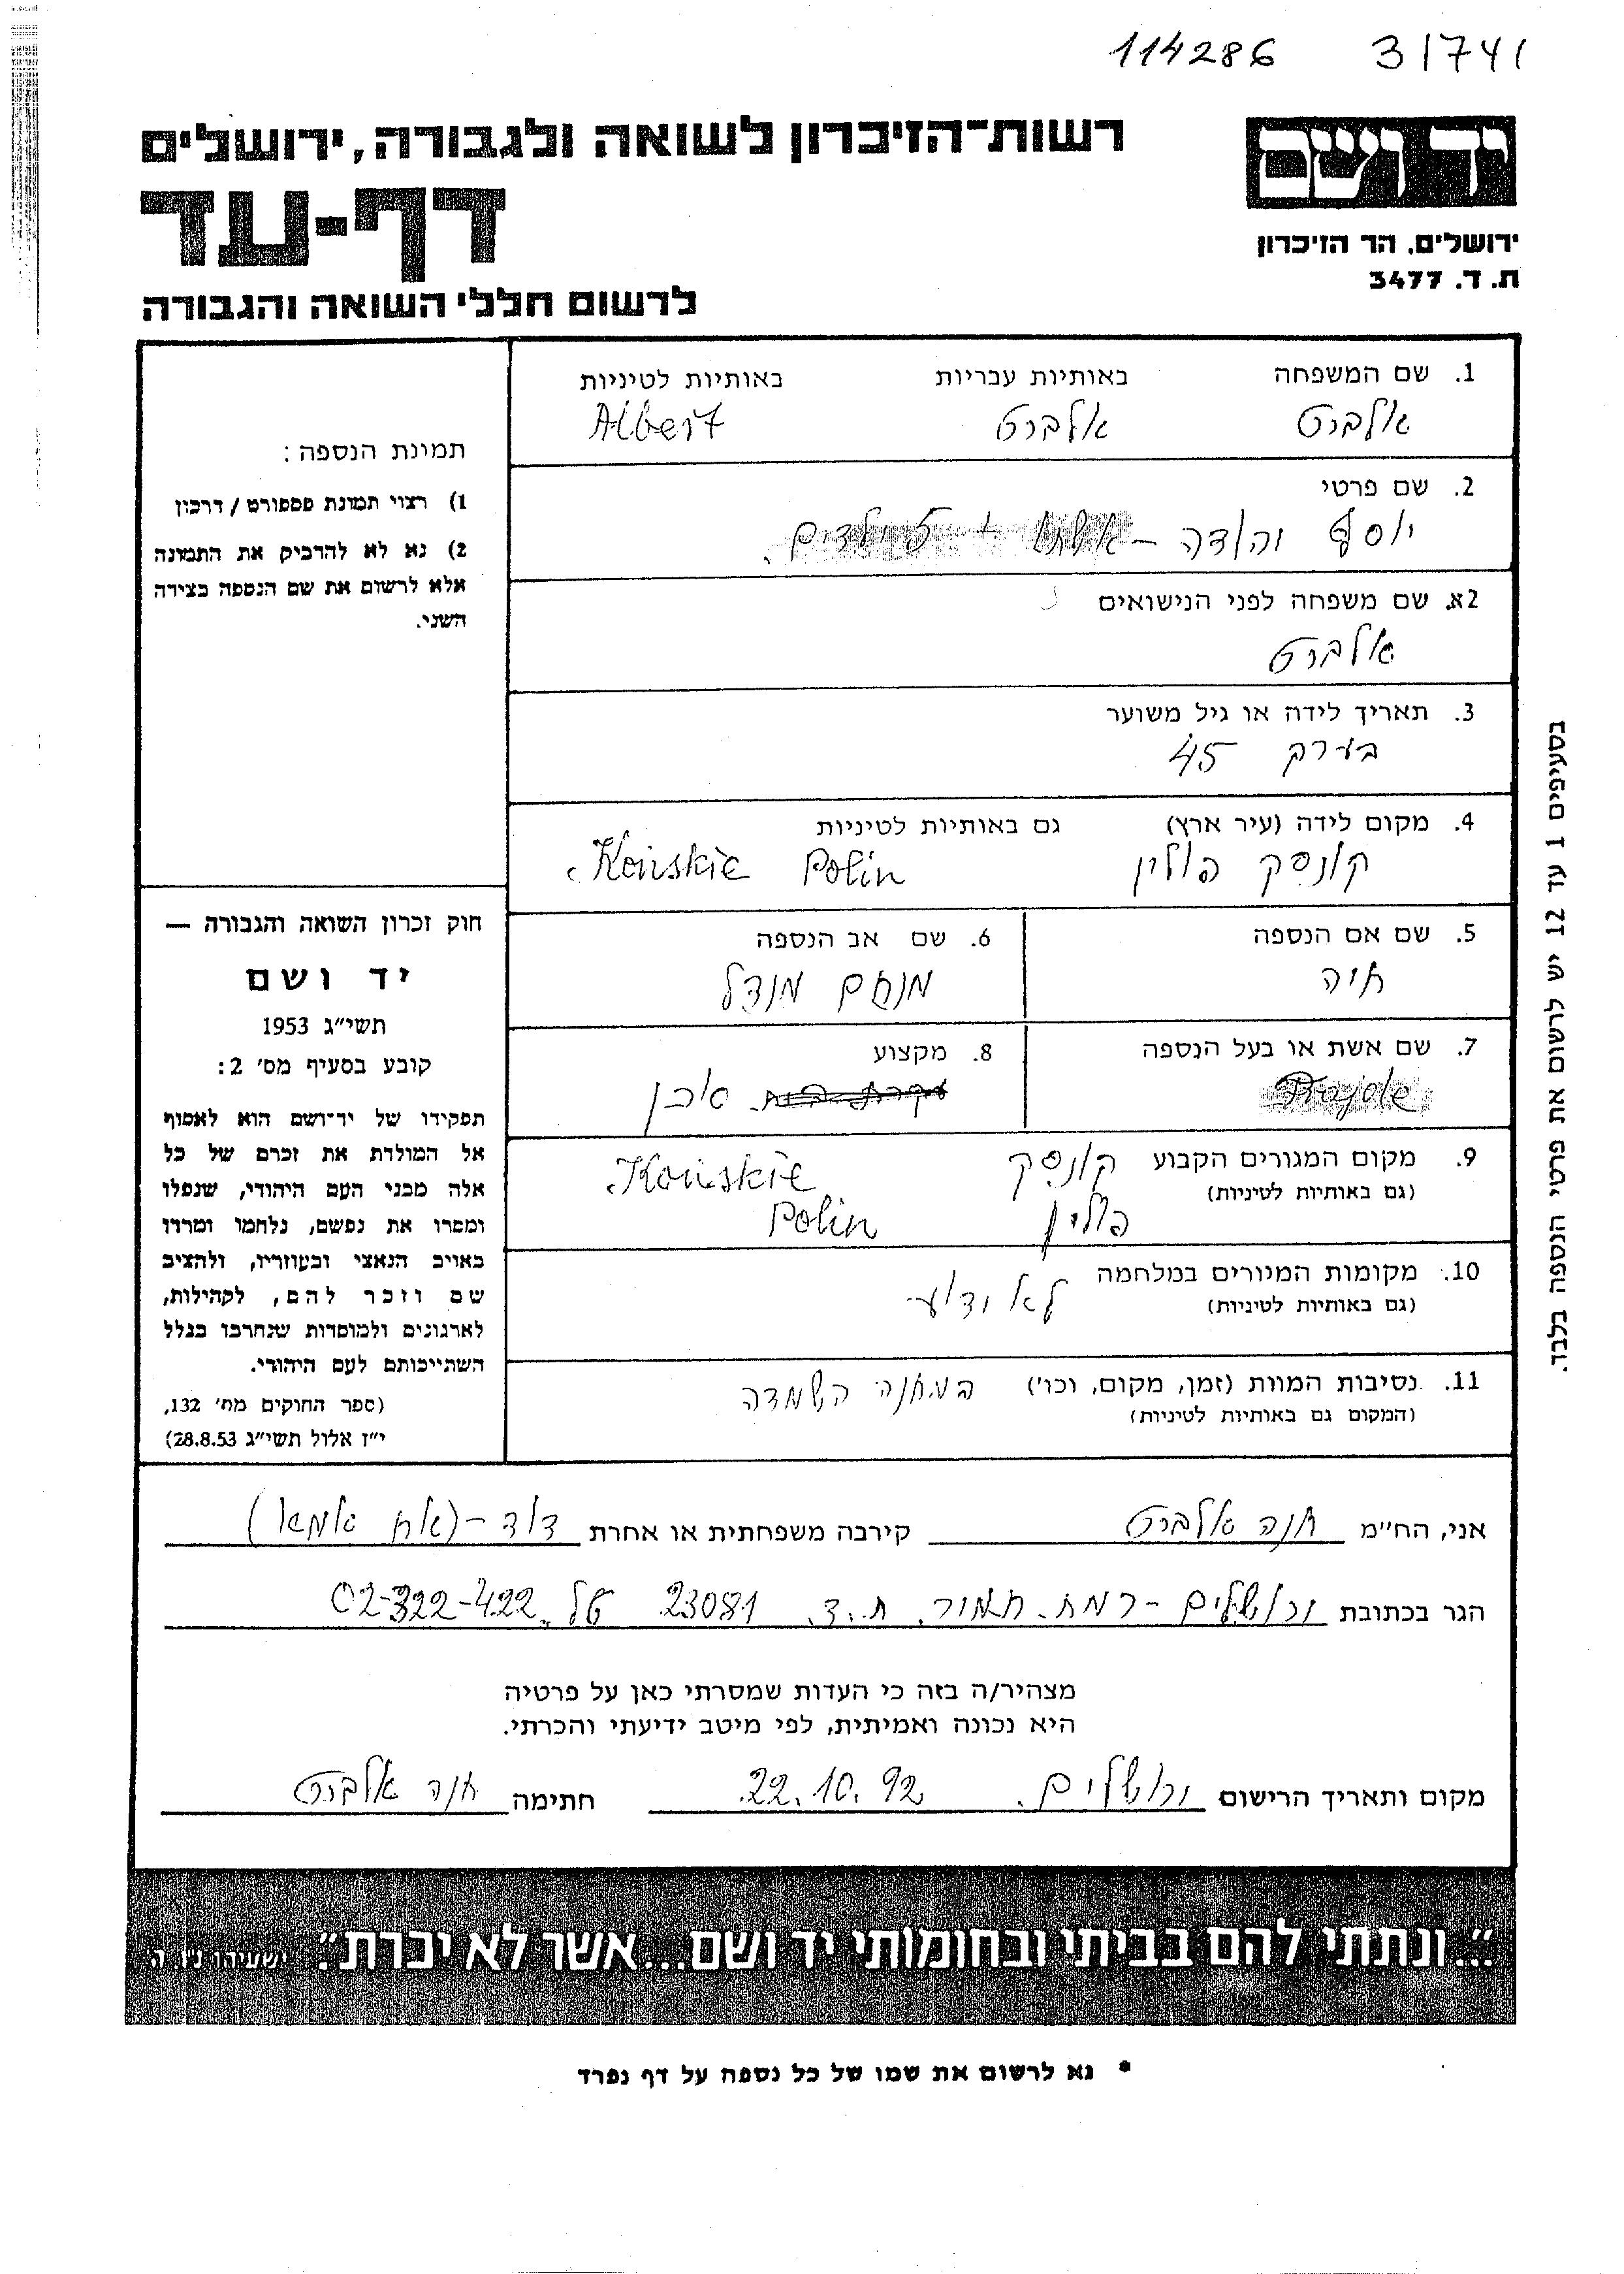 114286 31741
יד ושם
רשות-הזיכרון לשואה ולגבורה, ירושלים
דף-עד
ירושלים, הר הזיכרון
ת. ד. 3477
לרשום חללי השואה והגבורה
1. שם המשפחה באותיות עבריות באותיות לטיניות
אלברט אלברט Albert
2. שם פרטי
יוסף והודה - אשתו + 5 ילדים.
2א. שם משפחה לפני הנישואים
אלברט
3. תאריך לידה או גיל משוער
בערק 45
4. מקום לידה (עיר ארץ) גם באותיות לטיניות
קונסק פולין Polin Końskie
5. שם אם הנספה
חיה
6. שם אב הנספה
מנחם מנדל
7. שם אשת או בעל הנספה
8. מקצוע
עקרת בית.
9. מקום המגורים הקבוע קונסק Końskie
(גם באותיות לטיניות)
פולין Polin
10. מקומות המגורים במלחמה לא ודוע
(גם באותיות לטיניות)
11. נסיבות המוות (זמן, מקום, וכו') במחנה השמדה
(המקום גם באותיות לטיניות)
תמונת הנספה:
1) רצוי תמונת פספורט / דרכון
2) נא לא להדביק את התמונה
אלא לרשום את שם הנספה בצידה
השני.
חוק זכרון השואה והגבורה —
יד ושם
תשי"ג 1953
קובע בסעיף מס' 2:
תפקידו של יד-ושם הוא לאסוף
אל המולדת את זכרם של כל
אלה מבני העם היהודי, שנפלו
ומסרו את נפשם, נלחמו ומרדו
באויב הנאצי ובעוזריו, ולהציב
שם וזכר להם, לקהילות,
לארגונים ולמוסדות שנחרבו בגלל
השתייכותם לעם היהודי.
(ספר החוקים מס' 132,
י"ז אלול תשי"ג 28.8.53)
בסעיפים 1 עד 12 יש לרשום את פרטי הנספה בלבד.
אני, החי"מ חנה אלברט קירבה משפחתית או אחרת דוד - (אח אמא)
הגר בכתובת ורושלים - רמת. תמור. ת.ד. 23081 טל. 02-322-422
מצהיר/ה בזה כי העדות שמסרתי כאן על פרטיה
היא נכונה ואמיתית, לפי מיטב ידיעתי והכרתי.
מקום ותאריך הרישום ורושלים. 22.10.92 חתימה חנה אלברט
"...ונתתי להם בביתי ובחומותי יד ושם...אשר לא יכרת". ישעיהו נ"ו, ה
* נא לרשום את שמו של כל נספה על דף נפרד